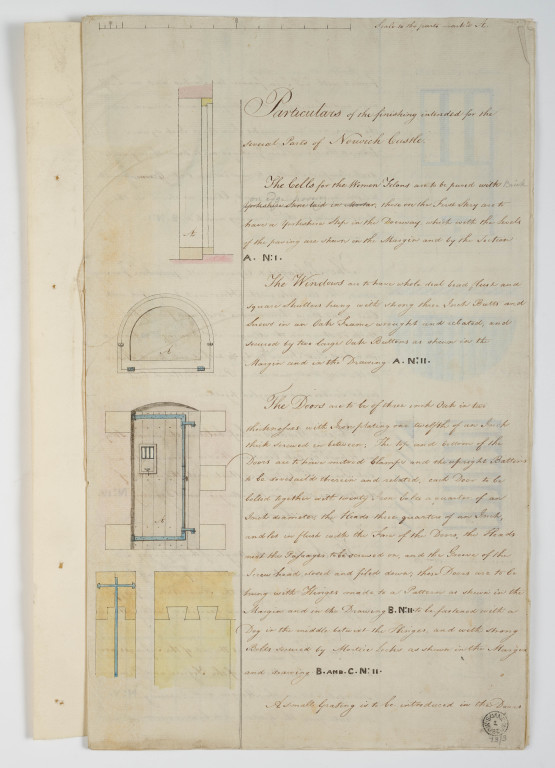 Scale to the parts mark'd A.
Particulars of the finishing intended for the
several Parts of Norwich Castle.
The Cells for the Women Felons are to be paved with Brick
Yorkshire Stone laid in Mortar, those on the First Story are to
have a Yorkshire Step in the Doorway, which with the levels
of the paving are shewn in the Margin and by the Section
A. No: I.
The Windows are to have whole deal bead flush and
square Shutters hung with strong three Inch Butts and
Screws in an Oak Frame wrought and rebated, and
secured by two large Oak Buttons as shewn in the
Margin and in the Drawing A. No: II.
The Doors are to be of three inch Oak in two
thicknesses with Iron plating one twelfth of an Inch
thick screwed in between; The top and bottom of the
Doors are to have mitred Clamps and the upright Battens
to be dovetail'd therein and rebated, each Door to be
bolted together with twenty Iron bolts a quarter of an
Inch diameter, the Heads three quarters of an Inch,
and let in flush with the Face of the Doors, the Heads
with the to be screwed on, and the Groove of the
Screw head closed and filed down; these Doors are to be
hung with Hinges made to a Pattern as shewn in the
Margin and in the Drawing B. No: II to be fastened with a
Dog in the middle between the Hinges, and with strong
Bolts secured by Mortice Locks as shewn in the Margin
and drawing B. AND C. No: II.
A small Grating is to be introduced in the Doors
A
A
A